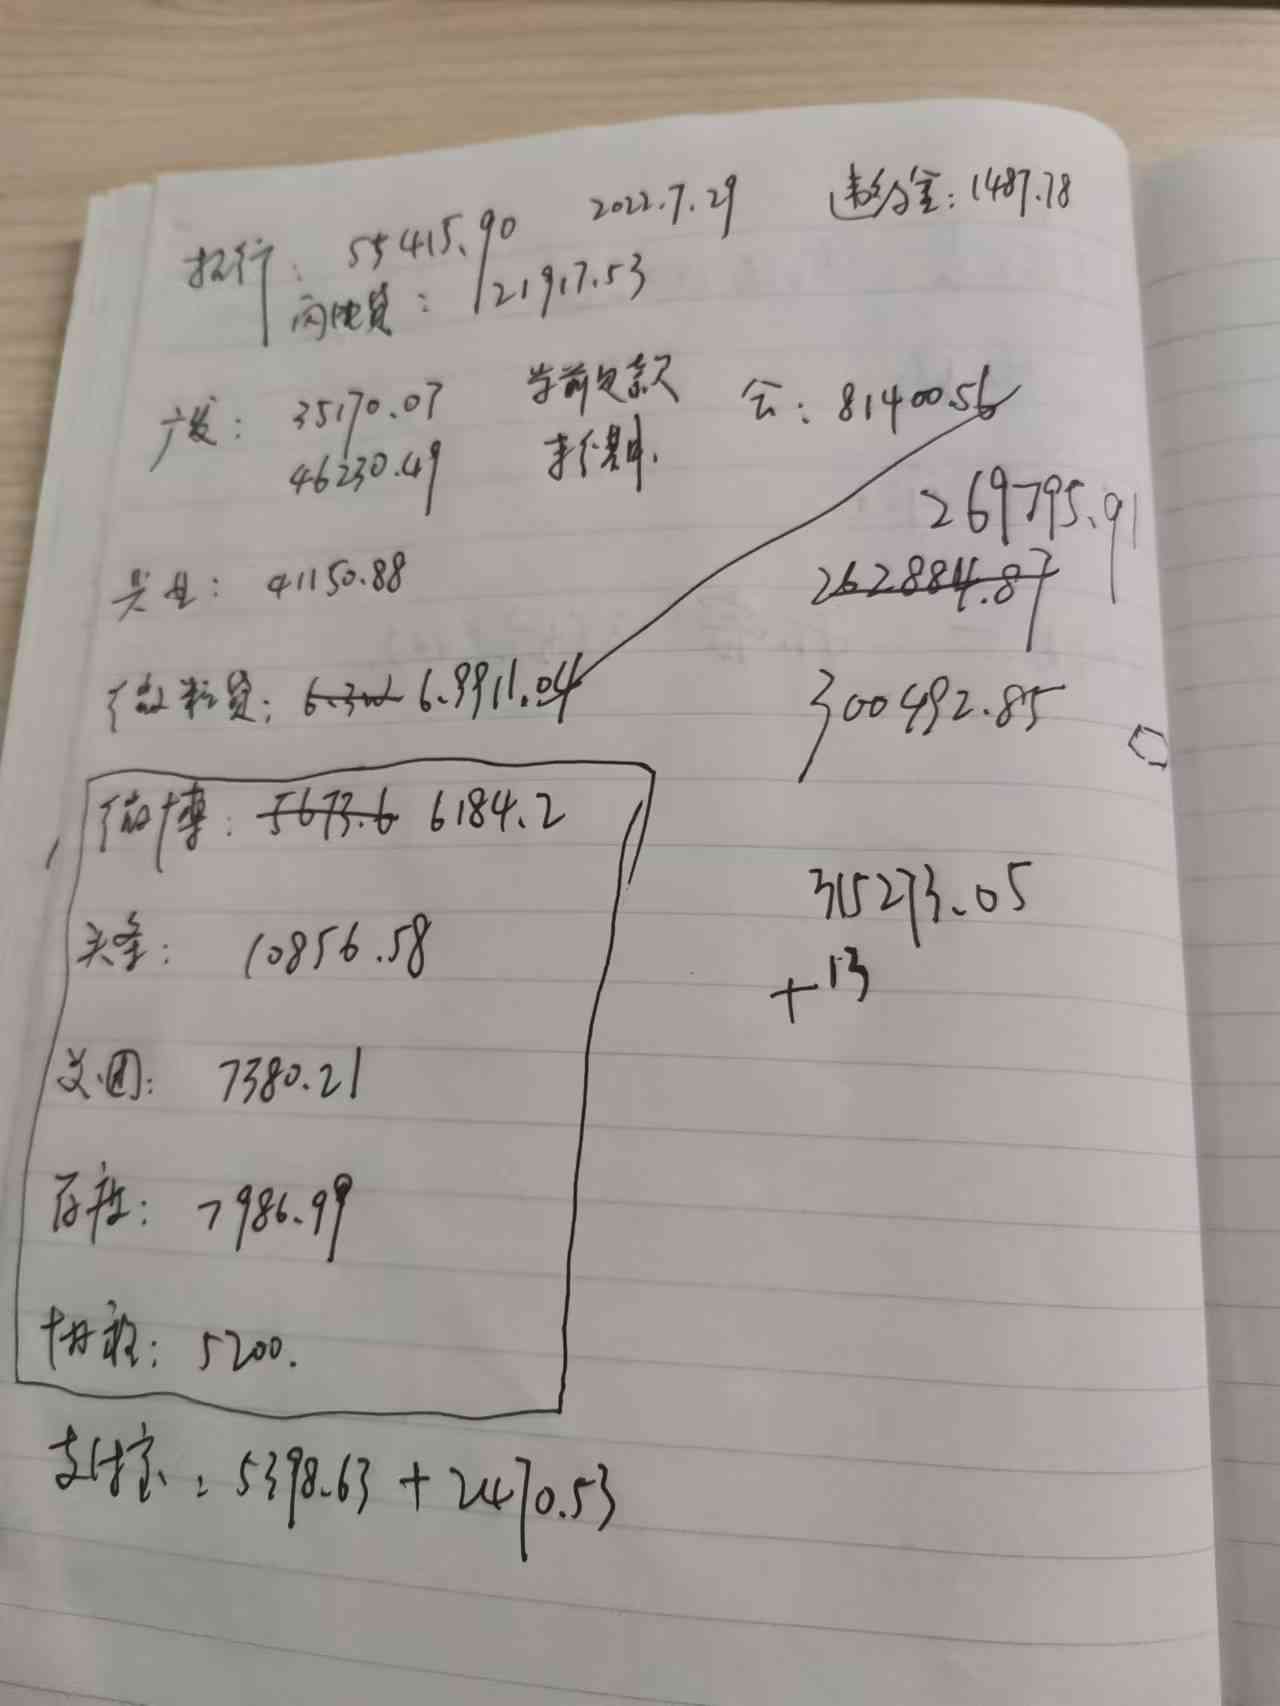 2022.7.29 违约金：1487.78
招行： 55415.90
闪电贷： 121917.53
广发： 35170.07 当前欠款 合：81400.56
46230.49 未分期.
269795.91
兴业： 41150.88
262884.87
微粒贷： 6.9911.04
300492.85
微博： 5673.6 6184.2
315273.05
头条： 10856.58
+13
美团： 7380.21
百度： 7986.99
5200.
支付宝： 5398.63 + 2470.53